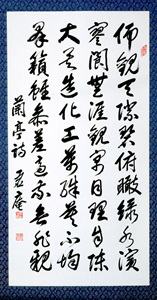 仰觀天際碧俯瞰緑水濱
寥闃無涯觀寓目理自陳
大矣造化工萬殊莫不均
群籟雖參差適我無非親
蘭亭詩